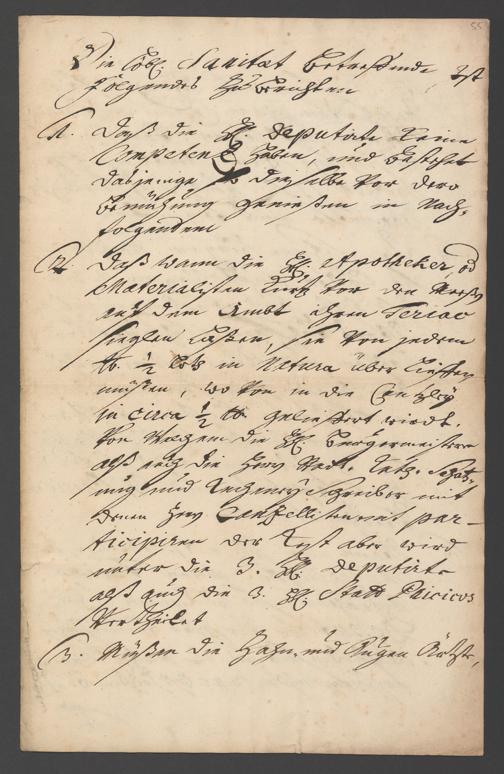 55
Die löbl. Sanitæt betreffende, ist
folgendes zu berichten
1. Daß die HH. Deputirte keine
Competenz haben, und bestehet
dasjenige so dieselbe vor dero
bemühung genießen in nach-
folgendem
2. Daß wann die HH. Apotheker, od
Materialisten kurtz vor der Meeß
auf dem Ambt ihren Teriac
sieglen laßen, sie von jedem
lb. ½ loth in Natura über lieffern
müßen, wo von in die Cantzley
in circa ½ lb. geliefert wird.
Von welchem die HH. Burgermeistere
alß auch die Herrn Rath.
und Rechney Schreiber mit
denen Herrn Cancellisten mit par-
ticipiren der Rest aber wird
unter die 3. HH. Deputirte
alß auch die 3. HH. Statt Phicicos
vertheilet
3. Müßen die Zahn- und Augen Ärtzte,